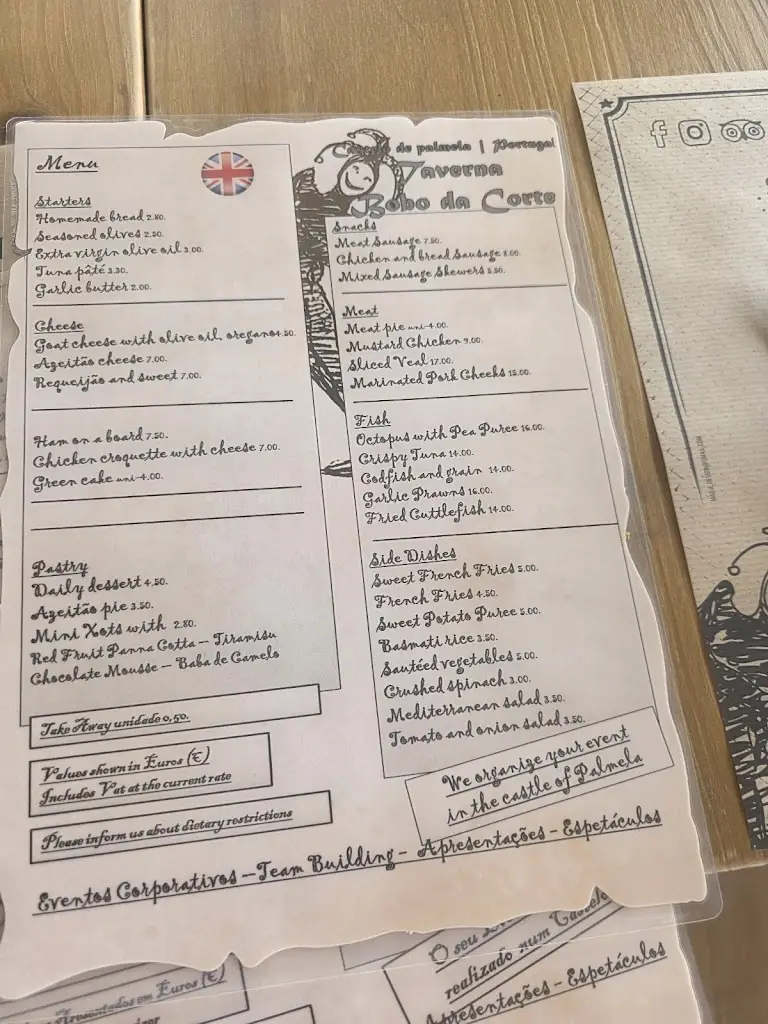 Menu
Starters
Homemade bread 2.80.
Seasoned olives 2.50.
Extra virgin olive oil 3.00.
Tuna pâté 3.30.
Garlic butter 2.00.
Cheese
Goat cheese with olive oil, oregano 4.50.
Azeitão cheese 7.00.
Requeijão and sweet 7.00.
Ham on a board 7.50.
Chicken croquette with cheese 7.00.
Green cake uni-4.00.
Pastry
Daily dessert 4.50.
Azeitão pie 3.50.
Mini Xots with 2.80.
Red Fruit Panna Cotta – Tiramisu
Chocolate Mousse – Baba de Camelo
Take Away unidade 0,50.
Values shown in Euros (€)
Includes Vat at the current rate
Please inform us about dietary restrictions
Castelo de palmela | Portugal
Taverna
Bobo da Corte
Snacks
Meat Sausage 7.50.
Chicken and bread Sausage 8.00.
Mixed Sausage Skewers 8.50.
Meat
Meat pie uni-4.00.
Mustard Chicken 9.00.
Sliced Veal 17.00.
Marinated Pork Cheeks 15.00.
Fish
Octopus with Pea Puree 16.00.
Crispy Tuna 14.00.
Codfish and grain 14.00.
Garlic Prawns 16.00.
Fried Cuttlefish 14.00.
Side Dishes
Sweet French Fries 5.00.
French Fries 4.50.
Sweet Potato Puree 5.00.
Basmati rice 3.50.
Sautéed vegetables 5.00.
Crushed spinach 3.00.
Mediterranean salad 3.50.
Tomato and onion salad 3.50.
We organize your event
in the castle of Palmela
Eventos Corporativos – Team Building – Apresentações – Espetáculos
O seu
realizado num Castelo
Apresentados em Euros (€)
Apresentações – Espetáculos